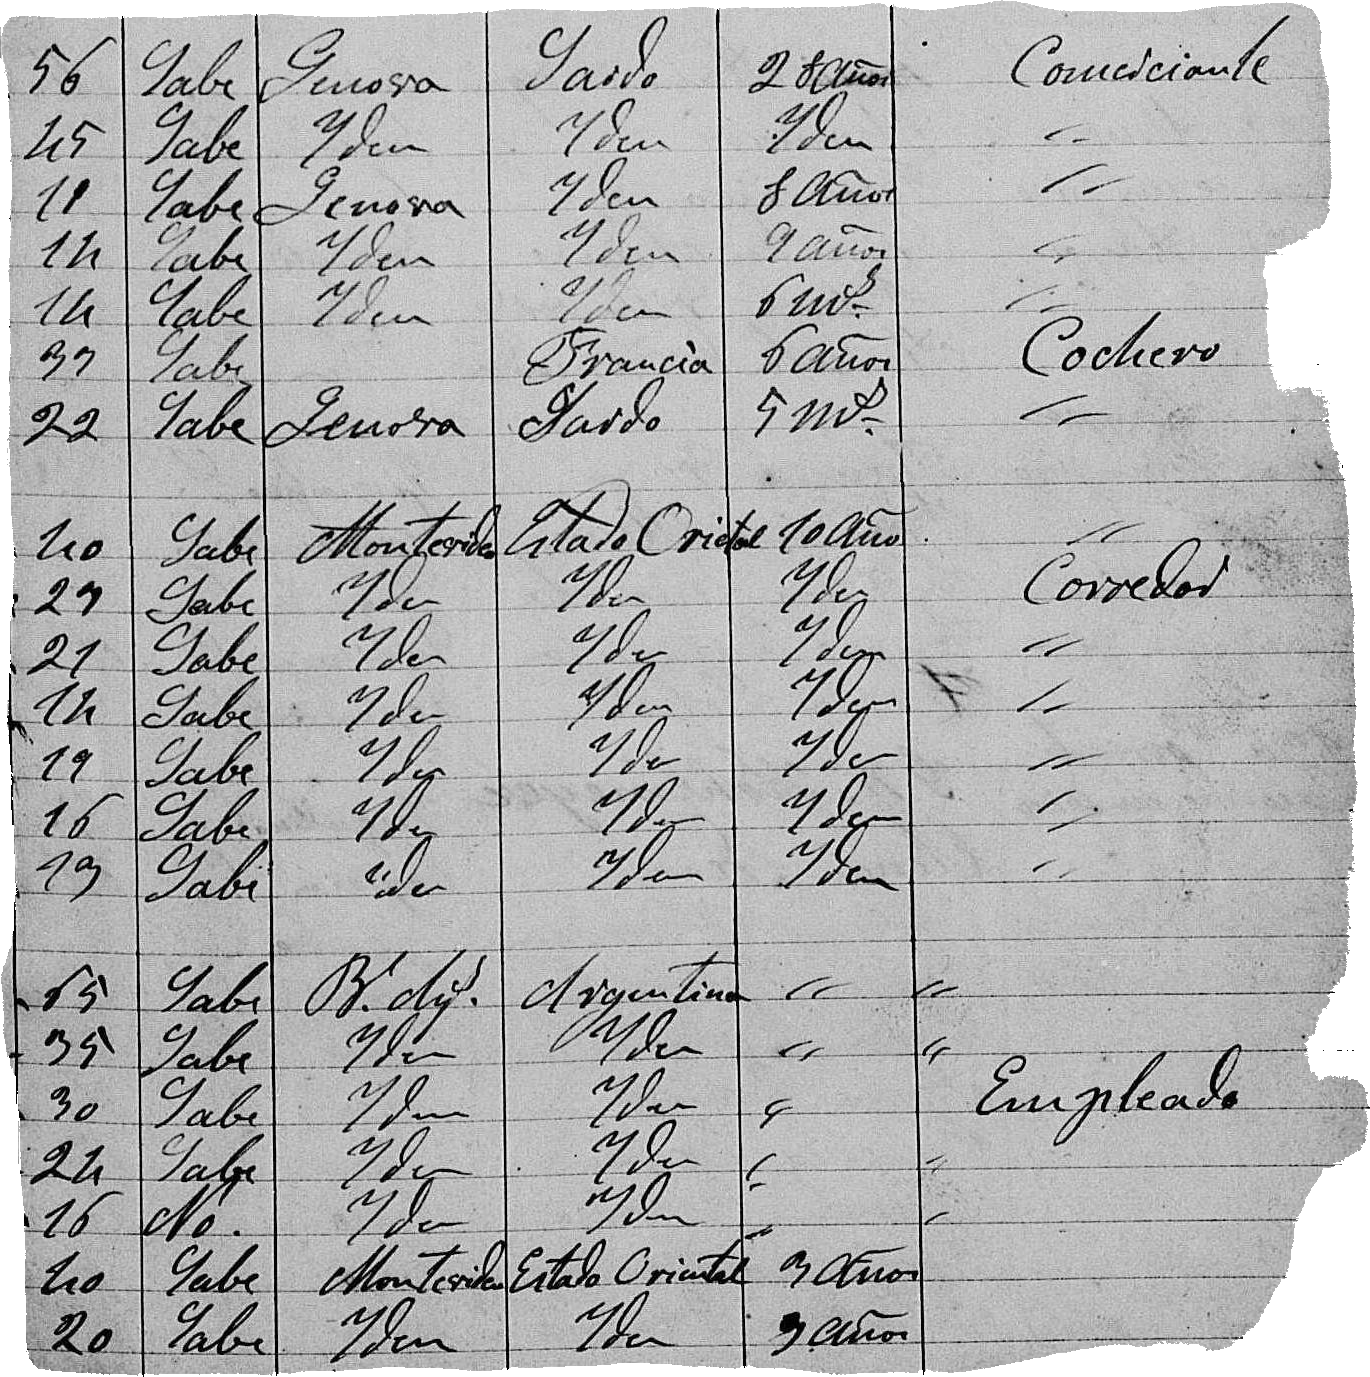 56 Sabe Genova Sardo 28 años Comerciante
45 Sabe Yden Yden Yden "
11 Sabe Genova Yden 8 años "
14 Sabe Yden Yden 9 años "
14 Sabe Yden Yden 6 ms. "
37 Sabe Francia 6 años Cochero
22 Sabe Genova Sardo 5 ms. "
40 Sabe Montevideo Estado Orietal 10 Año "
27 Sabe Yden Yden Yden Corredor
21 Sabe Yden Yden Yden "
14 Sabe Yden Yden Yden "
19 Sabe Yden Yden Yden "
16 Sabe Yden Yden Yden "
13 Sabe Yden Yden Yden "
65 Sabe Argentina " "
35 Sabe Yden Yden " "
30 Sabe Yden Yden " Empleado
24 Sabe Yden Yden " "
16 No. Yden Yden " "
40 Sabe Montevideo Estado Oriental 3 años
20 Sabe Yden Yden 3 años